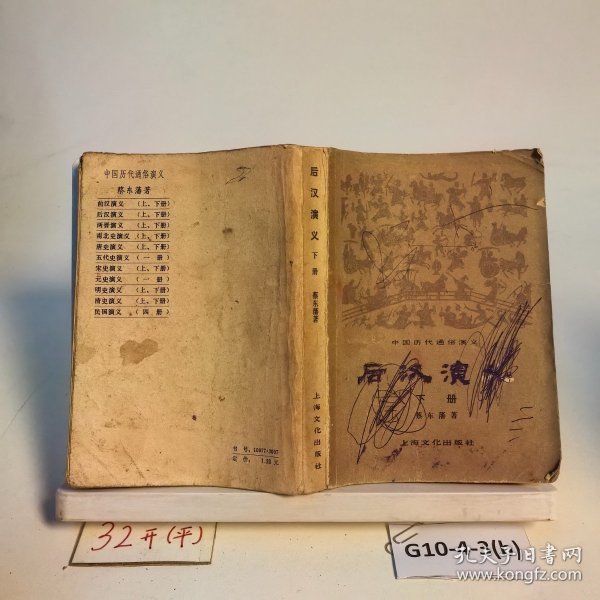 中国历代通俗演义
蔡东藩著
前汉演义 （上、下册）
后汉演义 （上、下册）
两晋演义 （上、下册）
南北史演义 （上、下册）
唐史演义 （上、下册）
五代史演义 （一 册）
宋史演义 （上、下册）
元史演义 （一 册）
明史演义 （上、下册）
清史演义 （上、下册）
民国演义 （四 册）
书号：10077·3007
定价： 1.35 元
后汉演义
下册
蔡东藩著
上海文化出版社
中国历代通俗演义
后汉演义
下册
蔡东藩著
上海文化出版社
32开(平)
G10-4-3(上)
孔夫子旧书网
www.kongfz.com